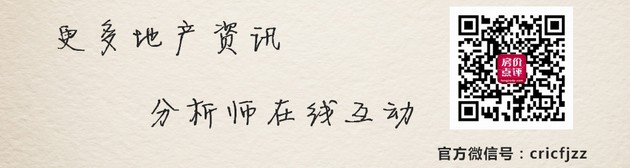 更多地产资讯
分析师在线互动
房价
点评
官方微信号：cricfjzz